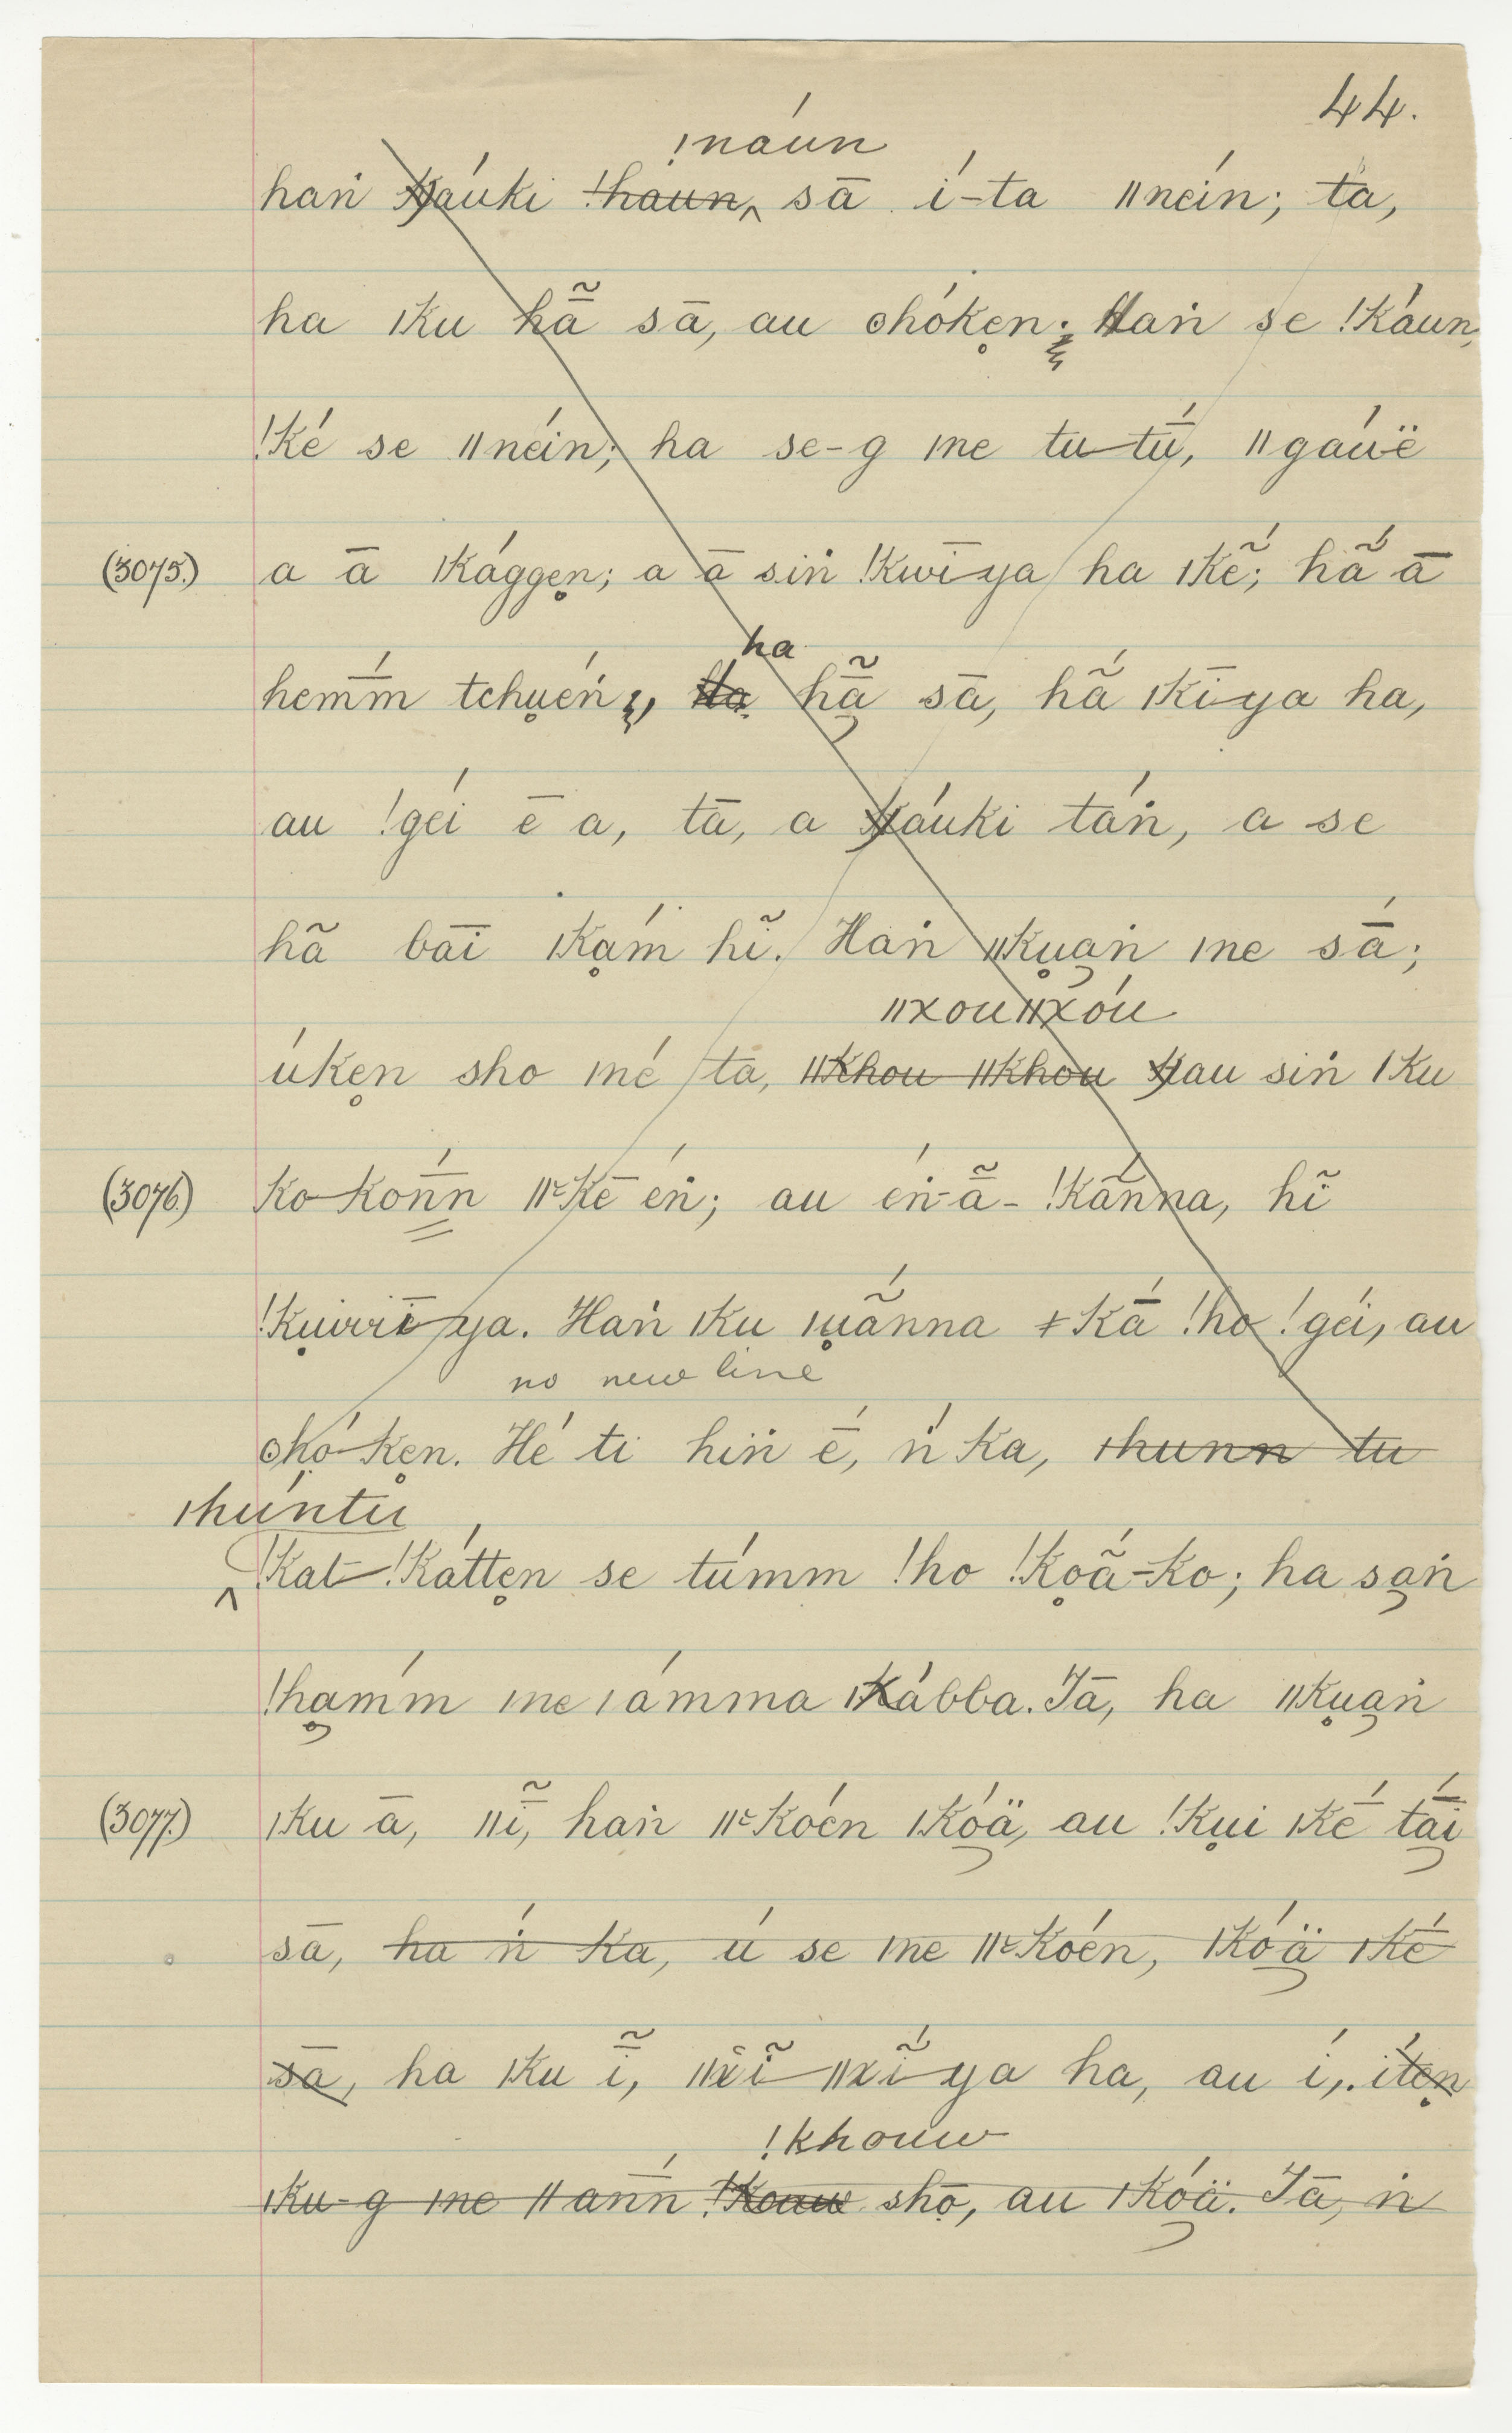 44.
!náun
haṅ ꞣáuki !haun, ‸ sā í-ta ǁneín; ta,
ha ǀku hā̃ sā, au ʘhóken̥; Haṅ se !káun,
!ké se ǁnéin; ha se-g ǀne tu-tū́, ǁgáuë
(3075.) a ā ǀkággen̥; a ā siṅ !kwī-ya ha ǀkẽ́; hã́ ā
ha
hemm̄́ tchu̥éṅ, Ha hā̃ sā, hã́ ǀkī-ya ha,
au !géi ē a, tā, a ꞣáuki táṅ, a se
hã bāi ǀkḁ́m hĩ. Haṅ ǁku̥aṅ ǀne sā́;
ǁxouǁxóu
úken̥ sho ǀné ta, ǁkhou ǁkhou ꞣau siṅ ǀku
(3076.) ko-konn̄́ ǁᵏkē éṅ; au éṅ-ā̃-!kā̃́nna, hĩ
!ku̥irrī-ya. Haṅ ǀku ǀu̥ã́nna ǂkā́ !ho !géi, au
no new line
ʘhó-ken̥. Hé ti hiṅ ḗ, ṅ́ ka, ǀhunn tu
ǀhúntu
‸ !kat-!kátten̥ se túmm !ho !ko̥ã́-ko; ha saṅ
!hḁmḿ ǀne ǀámma ǀkábba. Tā, ha ǁku̥aṅ
(3077.) ǀku ā, ǁī̃, haṅ ǁᵏkóën ǀkóä, au !ku̥i ǀkḗ tā́i
sā, ha ṅ́ ka, ú se ǀne ǁᵏkóën, ǀkóä ǀkḗ
sā, ha ǀku ī̃, ǁxĩ-ǁxĩ́-ya ha, au í, íten̥
!khouw
ǀku-g ǀne ǁann̄́ !kouw shō, au ǀkóä. Tā, ṅ